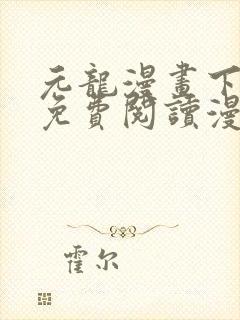 元龍漫畫下
免費閱讀漫
霍尔